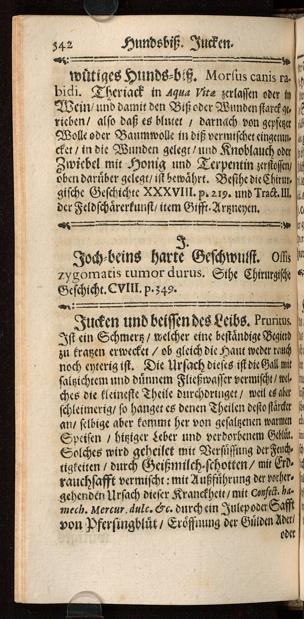 342 Hundsbiß. Jucken.
wütiges Hunds-biß. Morsus canis ra-
bidi. Theriack in Aqua Vitæ zerlassen oder in
Wein/ und damit den Biß oder Wunden starck ge-
rieben/ also daß es blutet/ darnach von gepfetzter
Wolle oder Baumwolle in diß vermischet eingetun-
cket/ in die Wunden gelegt/ und Knoblauch oder
Zwiebel mit Honig und Terpentin zerstossen/
oben darüber gelegt/ ist bewährt. Besihe die Chirur-
gische Geschichte XXXVIII. p. 219. und Tract. III.
der Feldschärerkunst/ item Gifft-Artzneyen.
J.
Joch-beins harte Geschwulst. Ossis
zygomatis tumor durus. Sihe Chirurgische
Geschicht. CVIII. p. 349.
Jucken und beissen des Leibs. Pruritus.
Ist ein Schmertz/ welcher eine beständige Begierd
zu kratzen erwecket/ ob gleich die Haut weder rauch
noch eyterig ist. Die Ursach dieses ist die Gall mit
saltzichtem und dünnem Fließwasser vermischt/ wel-
ches die kleineste Theile durchdringet/ weil es aber
schleimerig/ so hanget es denen Theilen desto stärcker
an/ selbige aber kommt her von gesaltzenen warmen
Speisen/ hitziger Leber und verdorbenem Geblüt.
Solches wird geheilet mit Versüssung der Feuch-
tigkeiten/ durch Geißmilch-schotten/ mit Erd-
rauchsafft vermischt: mit Außführung der vorher-
gehenden Ursach dieser Kranckheit/ mit Confect. ha-
mech. Mercur. dulc. &c. durch ein Julep oder Safft
von Pfersingblüt/ Eröffnung der Gülden Ader/
oder